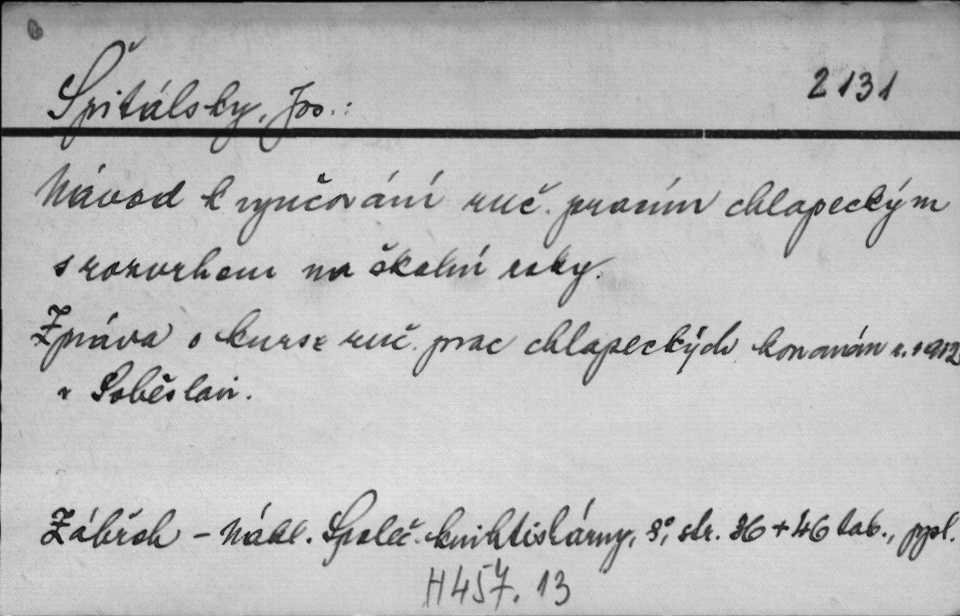 Špitálsky, Jos.:
2131
Návod k vyučování ruč. pracím chlapeckým
s rozvrhem na školní roky.
Zpráva o kurse ruč. prac chlapeckých konaném r. 1912
v Soběslavi.
Zábřeh - Nákl. Společ. knihtiskárny, 8°, str. 36 + 46 tab., ppl.
H457.13